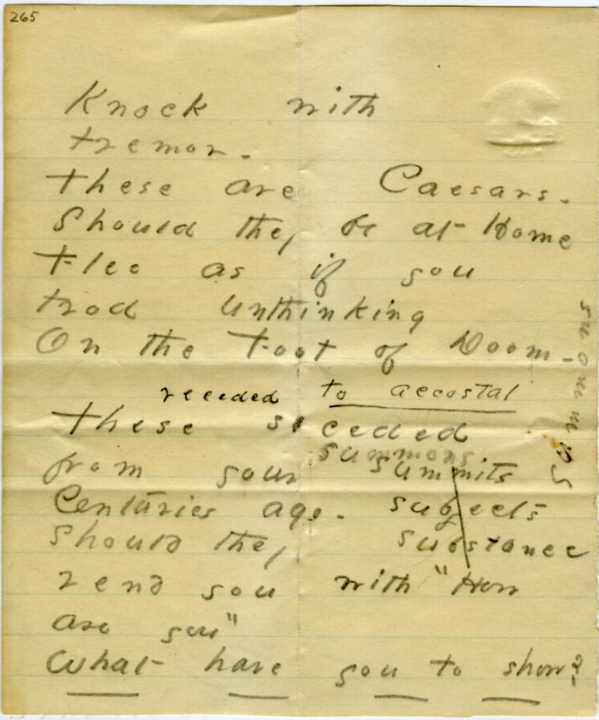 265
Knock with
tremor -
These are Caesars -
Should they be at Home
Flee as if you
trod unthinking
On the Foot of Doom -
receded to accostal
These seceded
summons
from your summits
Centuries ago - subjects
Should they substance
rend you with "How
are you"
What have you to show?
summons